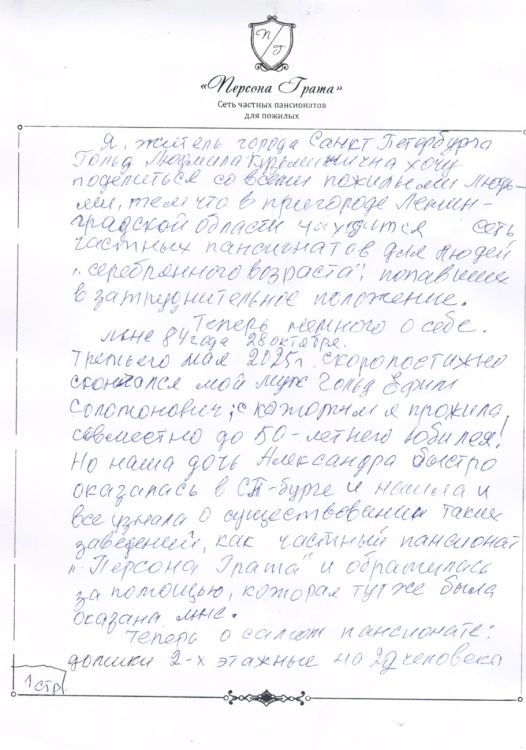 П Г
«Персона Грата»
Сеть частных пансионатов
для пожилых
Я, житель города Санкт Петербурга
Гольд Людмила хочу
поделиться со всеми пожилыми людь-
ми, тем что в пригороде Ленин-
градской области находится сеть
частных пансионатов для людей
„серебрянного возраста", попавших
в затруднительное положение.
Теперь немного о себе.
мне 84 года 28 октября.
Третьего мая 2025 г. скоропостижно
скончался мой муж Гольд Ефим
Соломонович, с которым я прожила,
совместно до 50-летнего юбилея!
Но наша дочь Александра быстро
оказалась в СП-бурге и нашла и
все узнала о существовании таких
заведений, как частный пансионат
„Персона Грата" и обратилась
за помощью, которая тут же была
оказана мне.
Теперь о самом пансионате:
домики 2-х этажные на человека
1 стр.